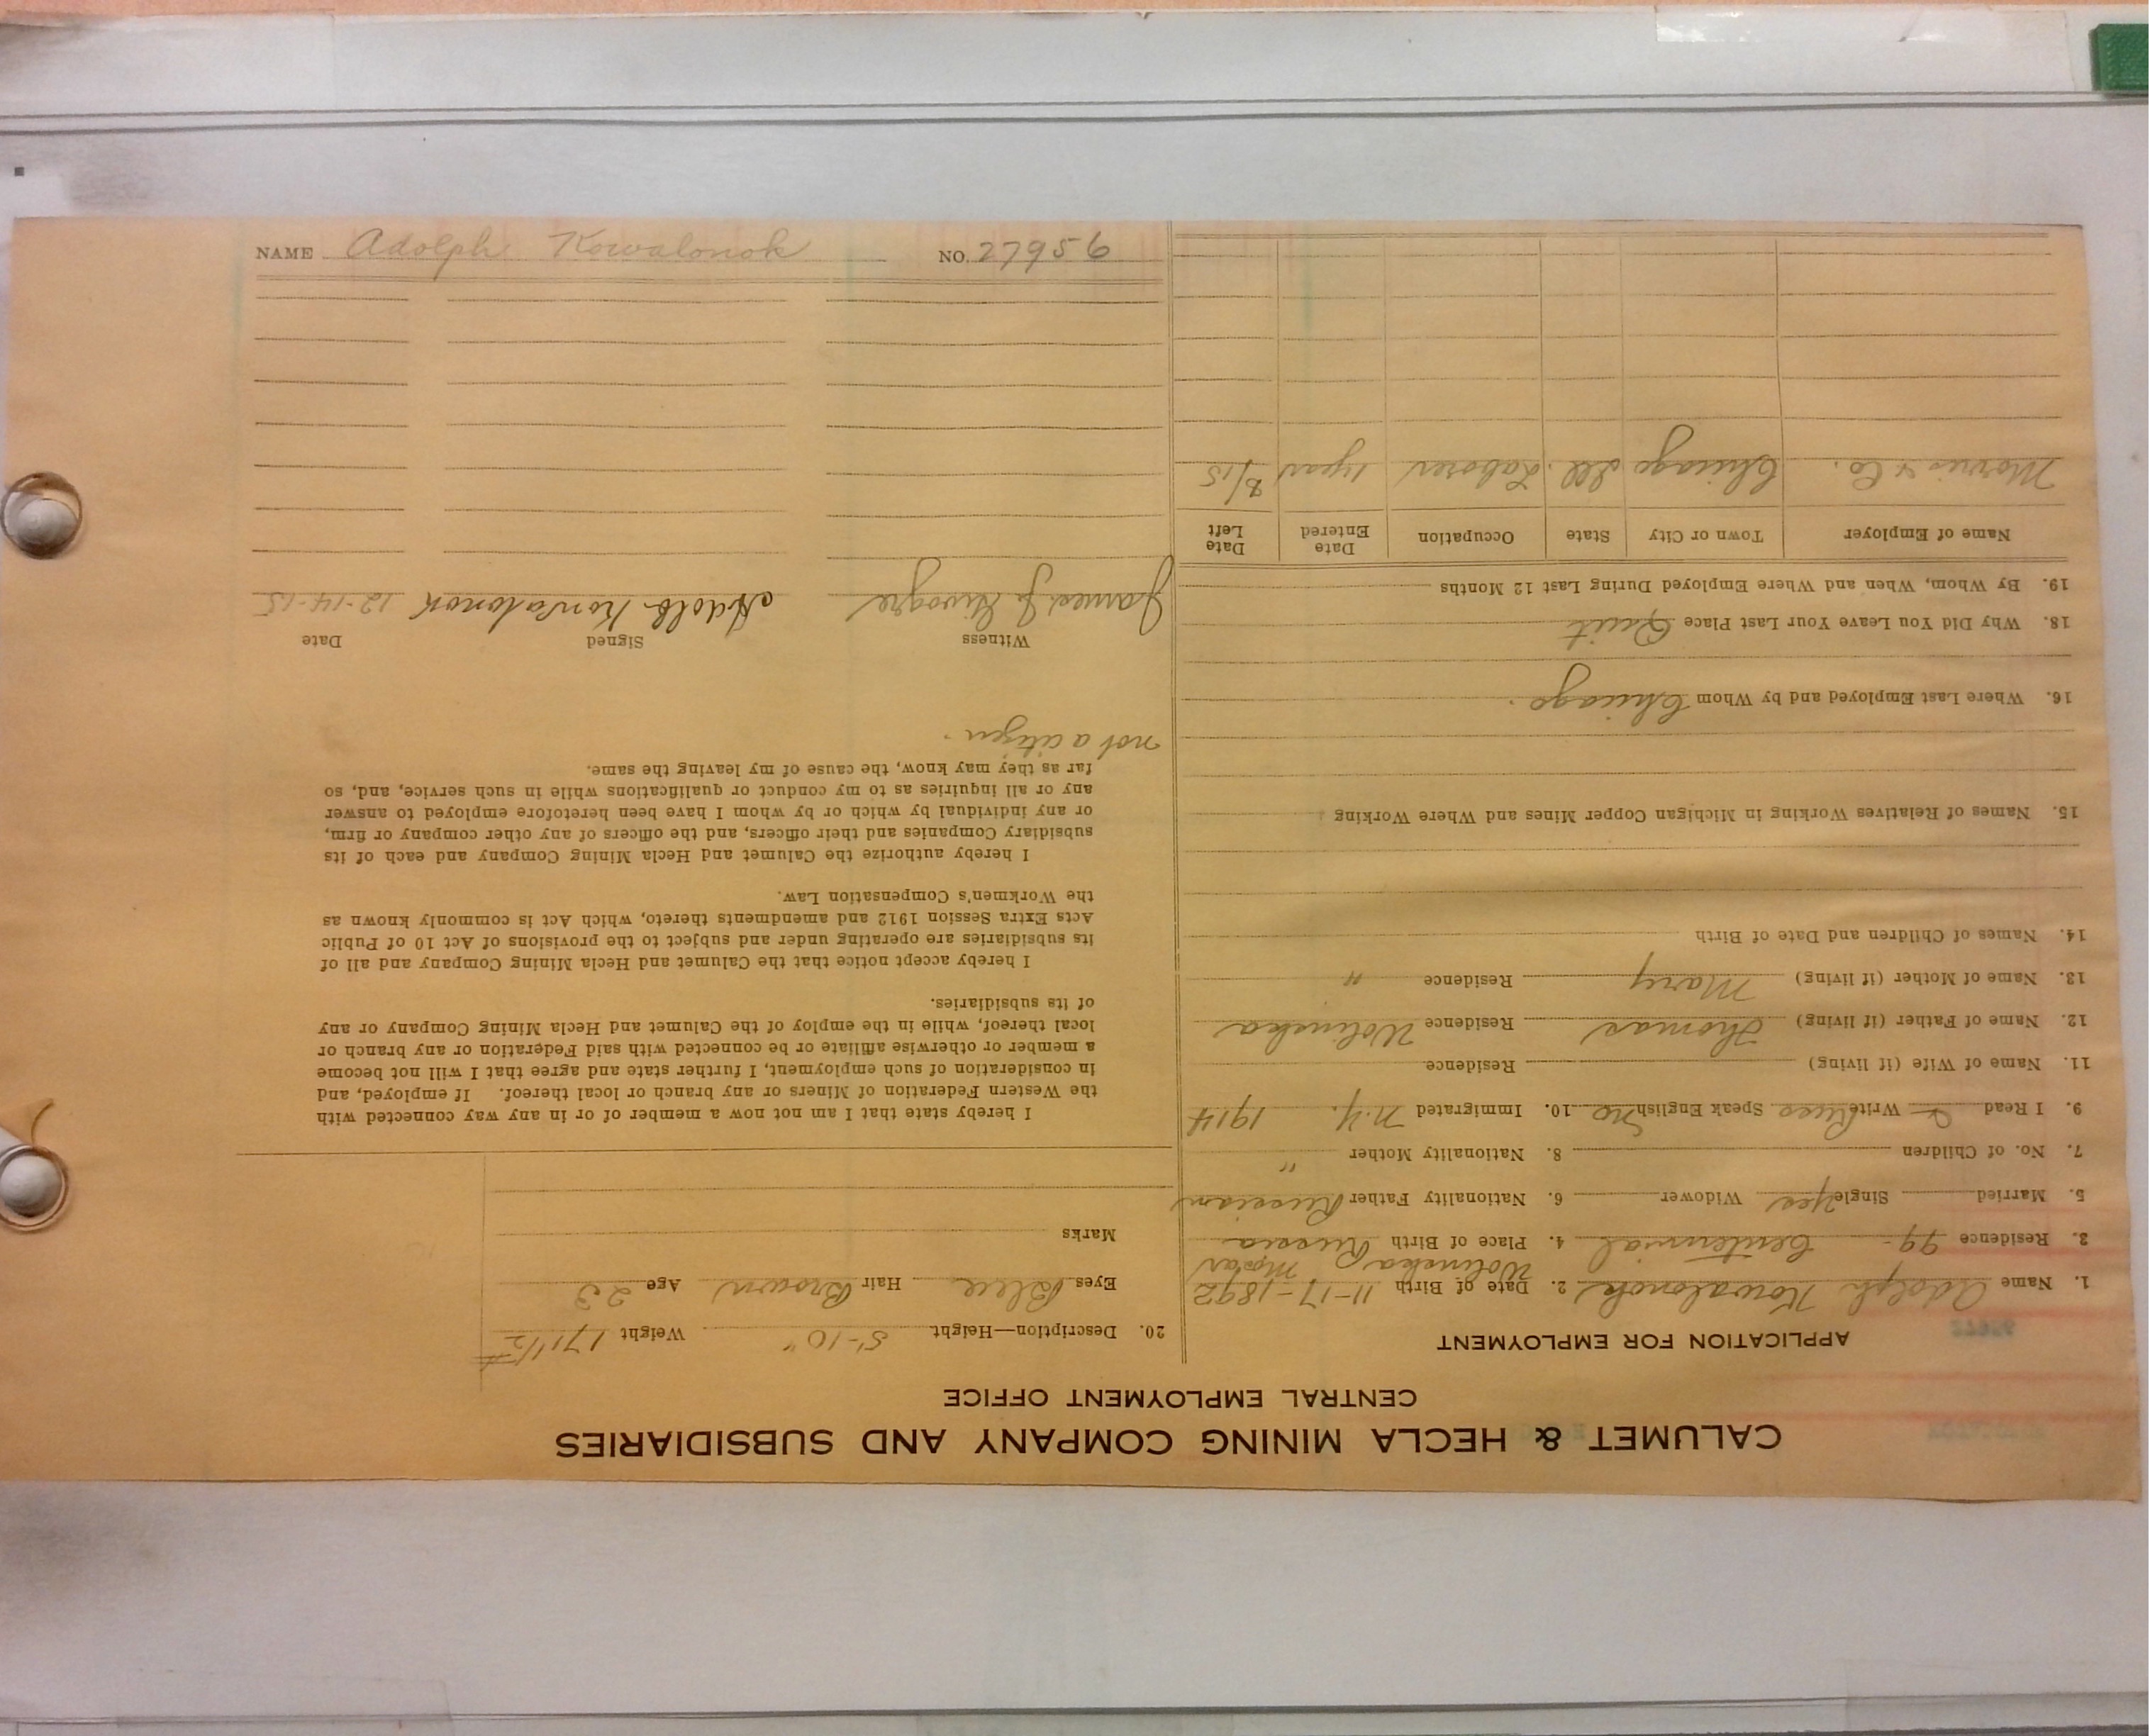 CALUMET & HECLA MINING COMPANY AND SUBSIDIARIES
CENTRAL EMPLOYMENT OFFICE
APPLICATION FOR EMPLOYMENT
1. Name Adolph Kowalonok 2. Date of Birth 11-17-1892
3. Residence 99 Centennial 4. Place of Birth Russia
5. Married Single Yes Widower 6. Nationality Father Russian
7. No. of Children 8. Nationality Mother "
9. I Read Write Speak English No 10. Immigrated N.Y. 1914
11. Name of Wife (if living) Residence
12. Name of Father (if living) Thomas Residence Wolinska
13. Name of Mother (if living) Mary Residence "
14. Names of Children and Date of Birth
15. Names of Relatives Working in Michigan Copper Mines and Where Working
16. Where Last Employed and by Whom Chicago.
18. Why Did You Leave Your Last Place Quit
19. By Whom, When and Where Employed During Last 12 Months
Name of Employer Town or City State Occupation Date Entered Date Left
Morris & Co. Chicago Ill. Laborer 1 year 8/15
20. Description—Height 5'-10" Weight 171 1/2 #
Eyes Blue Hair Brown Age 23
Marks
I hereby state that I am not now a member of or in any way connected with
the Western Federation of Miners or any branch or local thereof. If employed, and
in consideration of such employment, I further state and agree that I will not become
a member or otherwise affiliate or be connected with said Federation or any branch or
local thereof, while in the employ of the Calumet and Hecla Mining Company or any
of its subsidiaries.
I hereby accept notice that the Calumet and Hecla Mining Company and all of
its subsidiaries are operating under and subject to the provisions of Act 10 of Public
Acts Extra Session 1912 and amendments thereto, which Act is commonly known as
the Workmen's Compensation Law.
I hereby authorize the Calumet and Hecla Mining Company and each of its
subsidiary Companies and their officers, and the officers of any other company or firm,
or any individual by which or by whom I have been heretofore employed to answer
any or all inquiries as to my conduct or qualifications while in such service, and, so
far as they may know, the cause of my leaving the same.
not a citizen.
Witness Signed Date
James J. Adolb Kowalonok 12-14-15
NAME Adolph Kowalonok NO. 27956